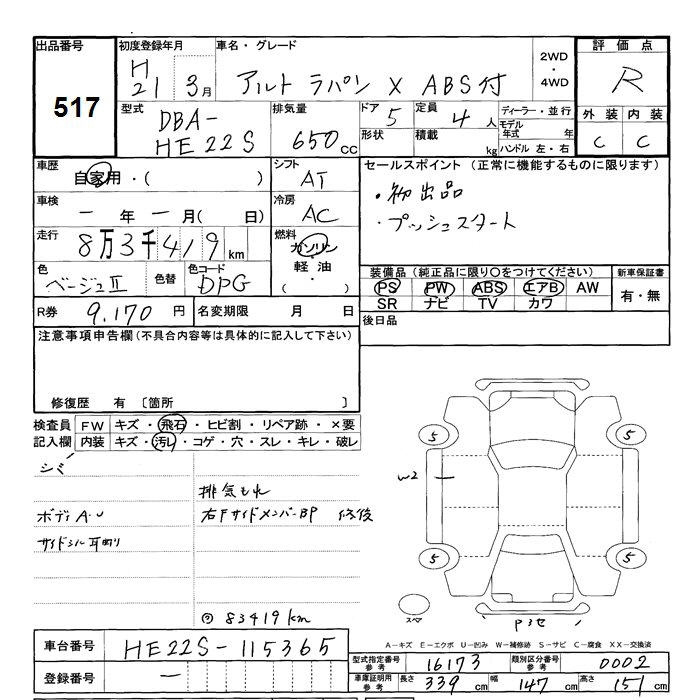 出品番号
517
初度登録年月
H
21 3月
車名・グレード
アルト ラパン X ABS付
2WD
・
4WD
評価点
R
外装 内装
C C
型式
DBA-
HE22S
排気量
650 cc
ドア 5
形状
定員 4 人
積載 kg
ディーラー・並行
モデル年式 年
ハンドル 左・右
車歴
自家用・( )
シフト
AT
セールスポイント (正常に機能するものに限ります)
・初出品
・プッシュスタート
車検
一 年 一 月( 日)
冷房
AC
走行
8万3千419 km
燃料
ガソリン
・
軽油
・
( )
色
ベージュII
色替
色コード
DPG
装備品 (純正品に限り○をつけてください)
PS PW ABS エアB AW
SR ナビ TV カワ
新車保証書
有・無
R券 9,170 円
名変期限 月 日
後日品
注意事項申告欄(不具合内容等は具体的に記入して下さい)
修復歴 有 〔箇所 〕
検査員
記入欄
FW キズ・飛石・ヒビ割・リペア跡・×要
内装 キズ・汚レ・コゲ・穴・スレ・キレ・破レ
シミ
排気もれ
ボディA・U
右Fサイドメンバー-BP 修復
83419km
5
5
W2
5
5
スペア
A－キズ E－エクボ U－凹み W－補修跡 S－サビ C－腐食 XX－交換済
車台番号 HE22S-115365
登録番号 一
型式指定番号
参考
16173
類別区分番号
参考
0002
車庫証明用
参考
長さ 339 cm 幅 147 cm 高さ 151 cm